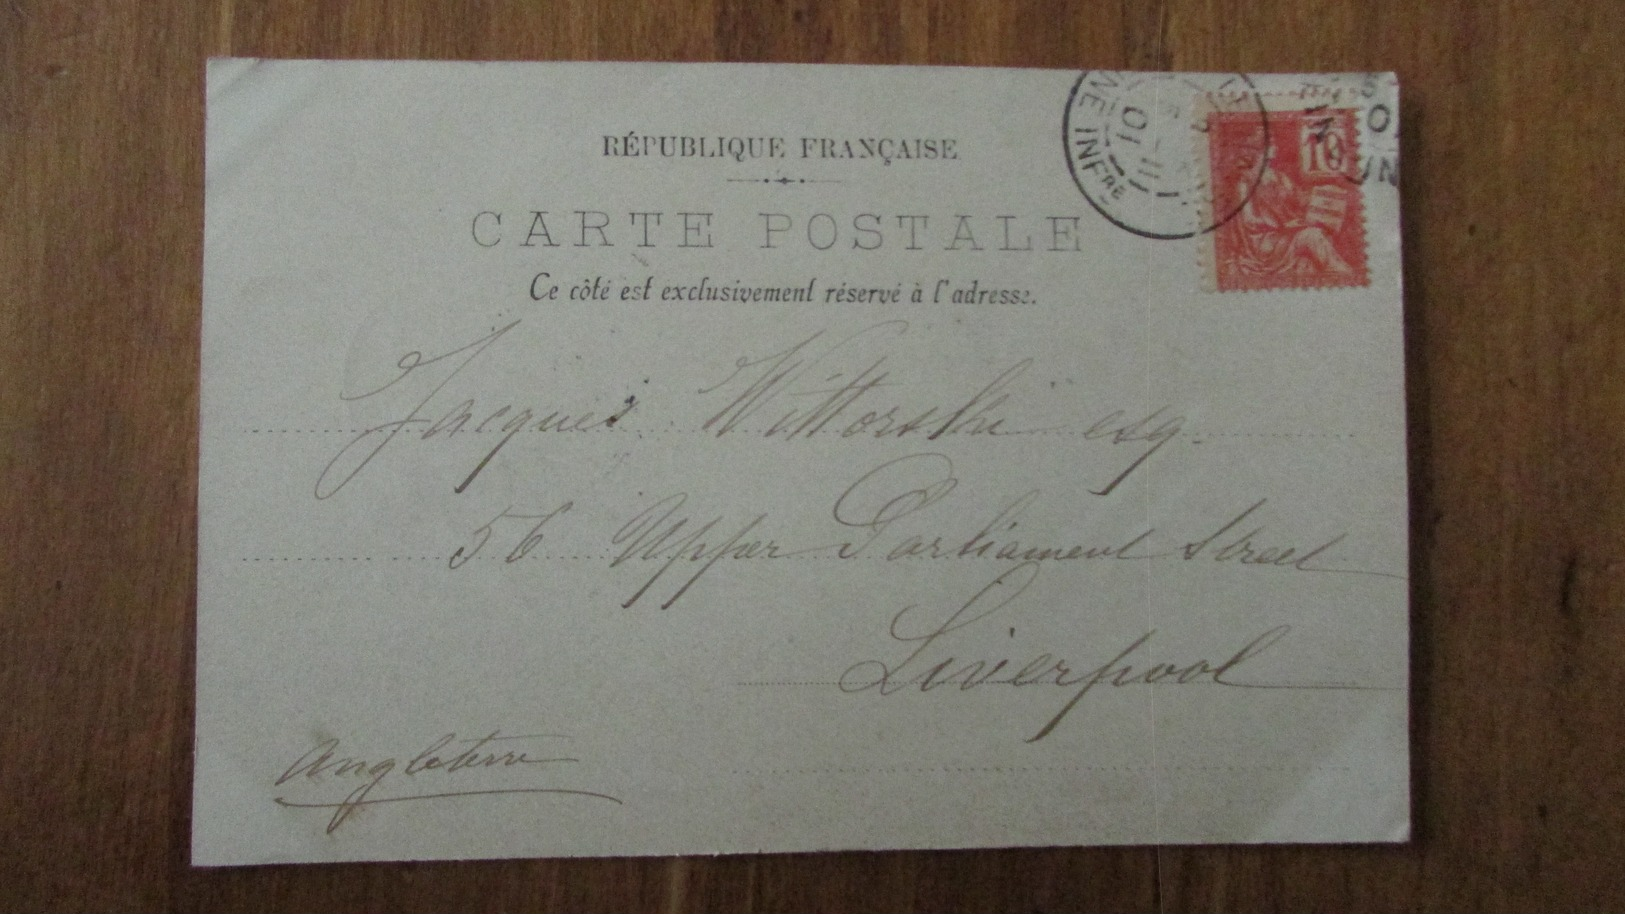 RÉPUBLIQUE FRANÇAISE
CARTE POSTALE
Ce côté est exclusivement réservé à l'adresse.
10
NE INFRE
01
Jacques Wittorski esq.
56 Upper Parliament Street
Liverpool
Angleterre